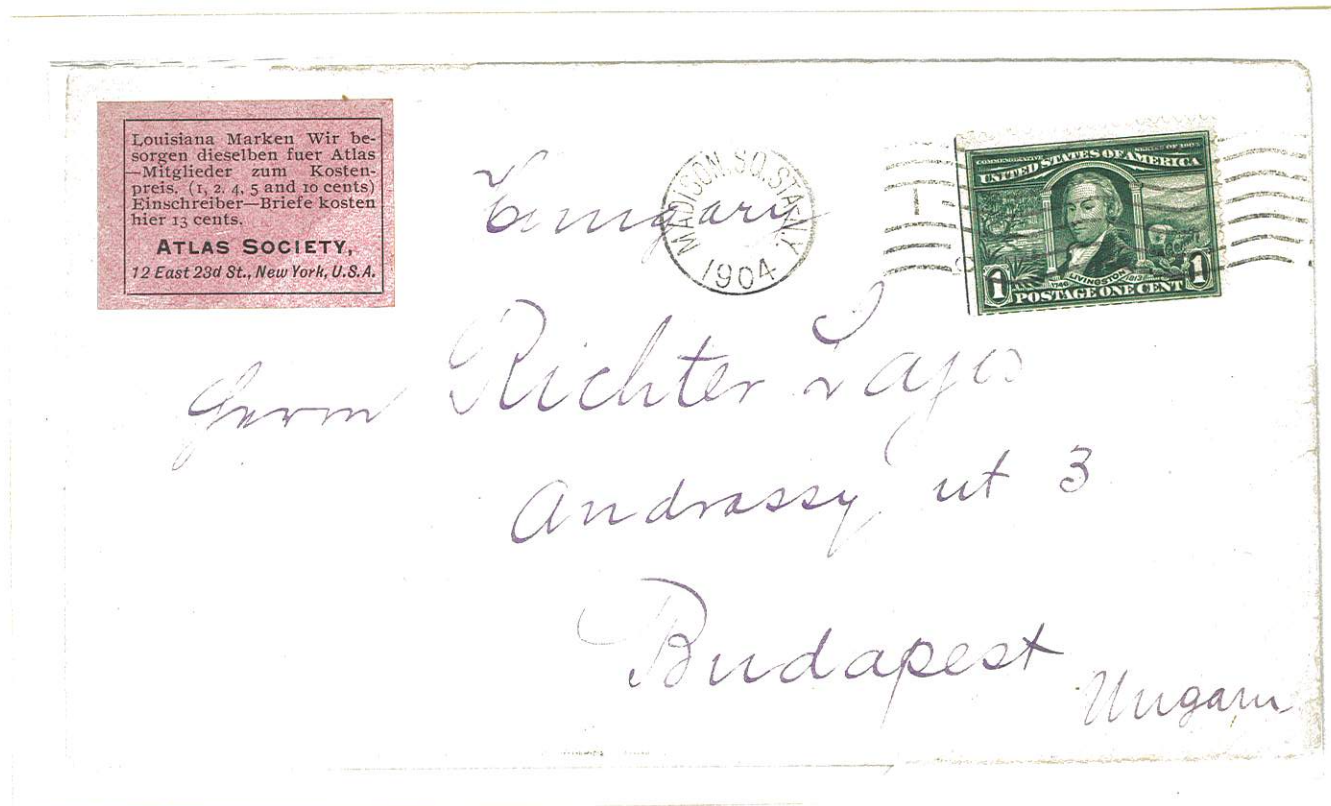 Louisiana Marken Wir be-
sorgen dieselben fuer Atlas
—Mitglieder zum Kosten-
preis. (1, 2, 4, 5 and 10 cents)
Einschreiber—Briefe kosten
hier 13 cents.
ATLAS SOCIETY,
12 East 23d St., New York, U.S.A.
Hungary
MADISON SQ. STA. N.Y.
1904
COMMEMORATIVE SERIES OF 1904
UNITED STATES OF AMERICA
LIVINGSTON
1 POSTAGE ONE CENT 1
Herrn Richter Lajos
Andrassy ut 3
Budapest
Ungarn